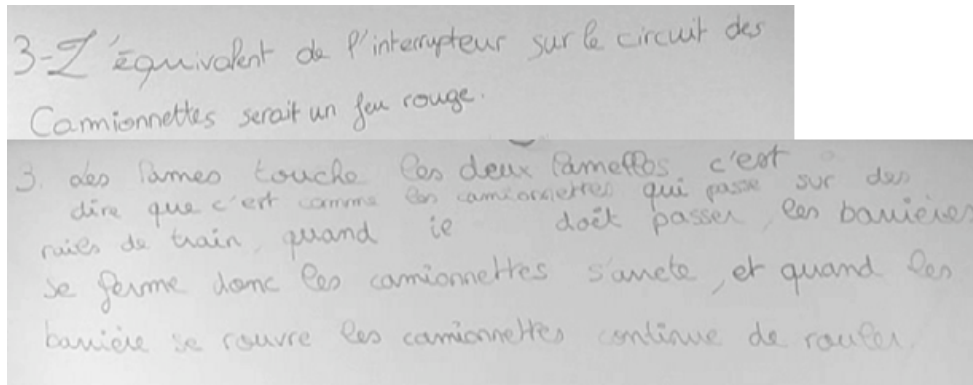 3-L'équivalent de l'interrupteur sur le circuit des
Camionnettes serait un feu rouge.
3. des lames touche les deux lamelles c'est
dire que c'est comme les camionnettes qui passe sur des
rails de train, quand ie doit passer, les barrières
se ferme donc les camionnettes s'arrete, et quand les
barrière se rouvre les camionnettes continue de rouler.